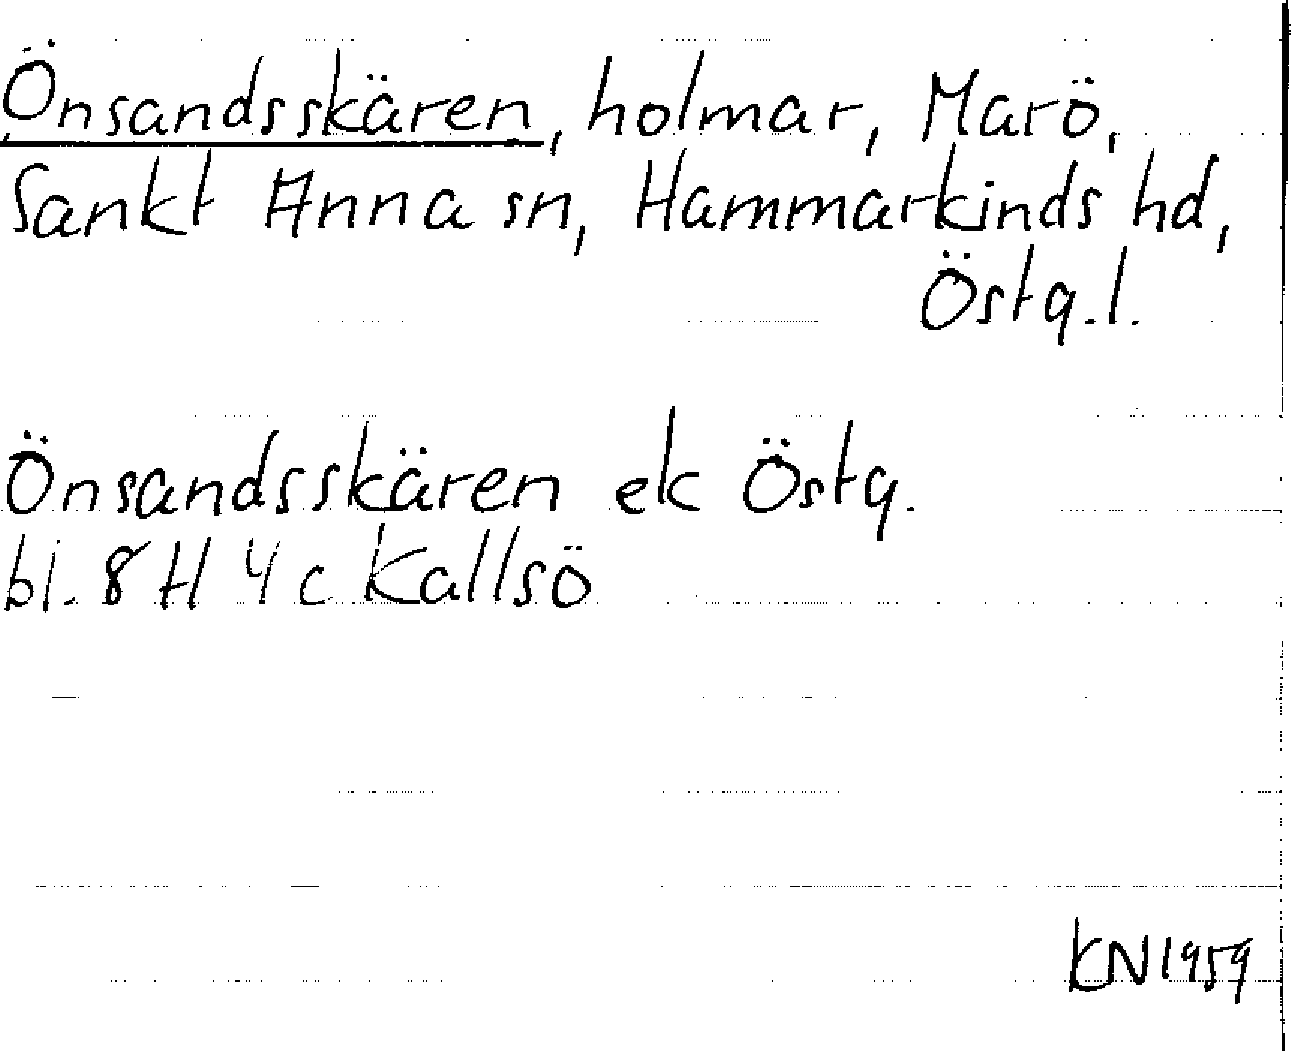 Önsandsskären, holmar, Marö,
Sankt Anna sn, Hammarkinds hd,
Östg.l.
Önsandsskären ek Östg.
bl. 8H 4c Kallsö
KN1959